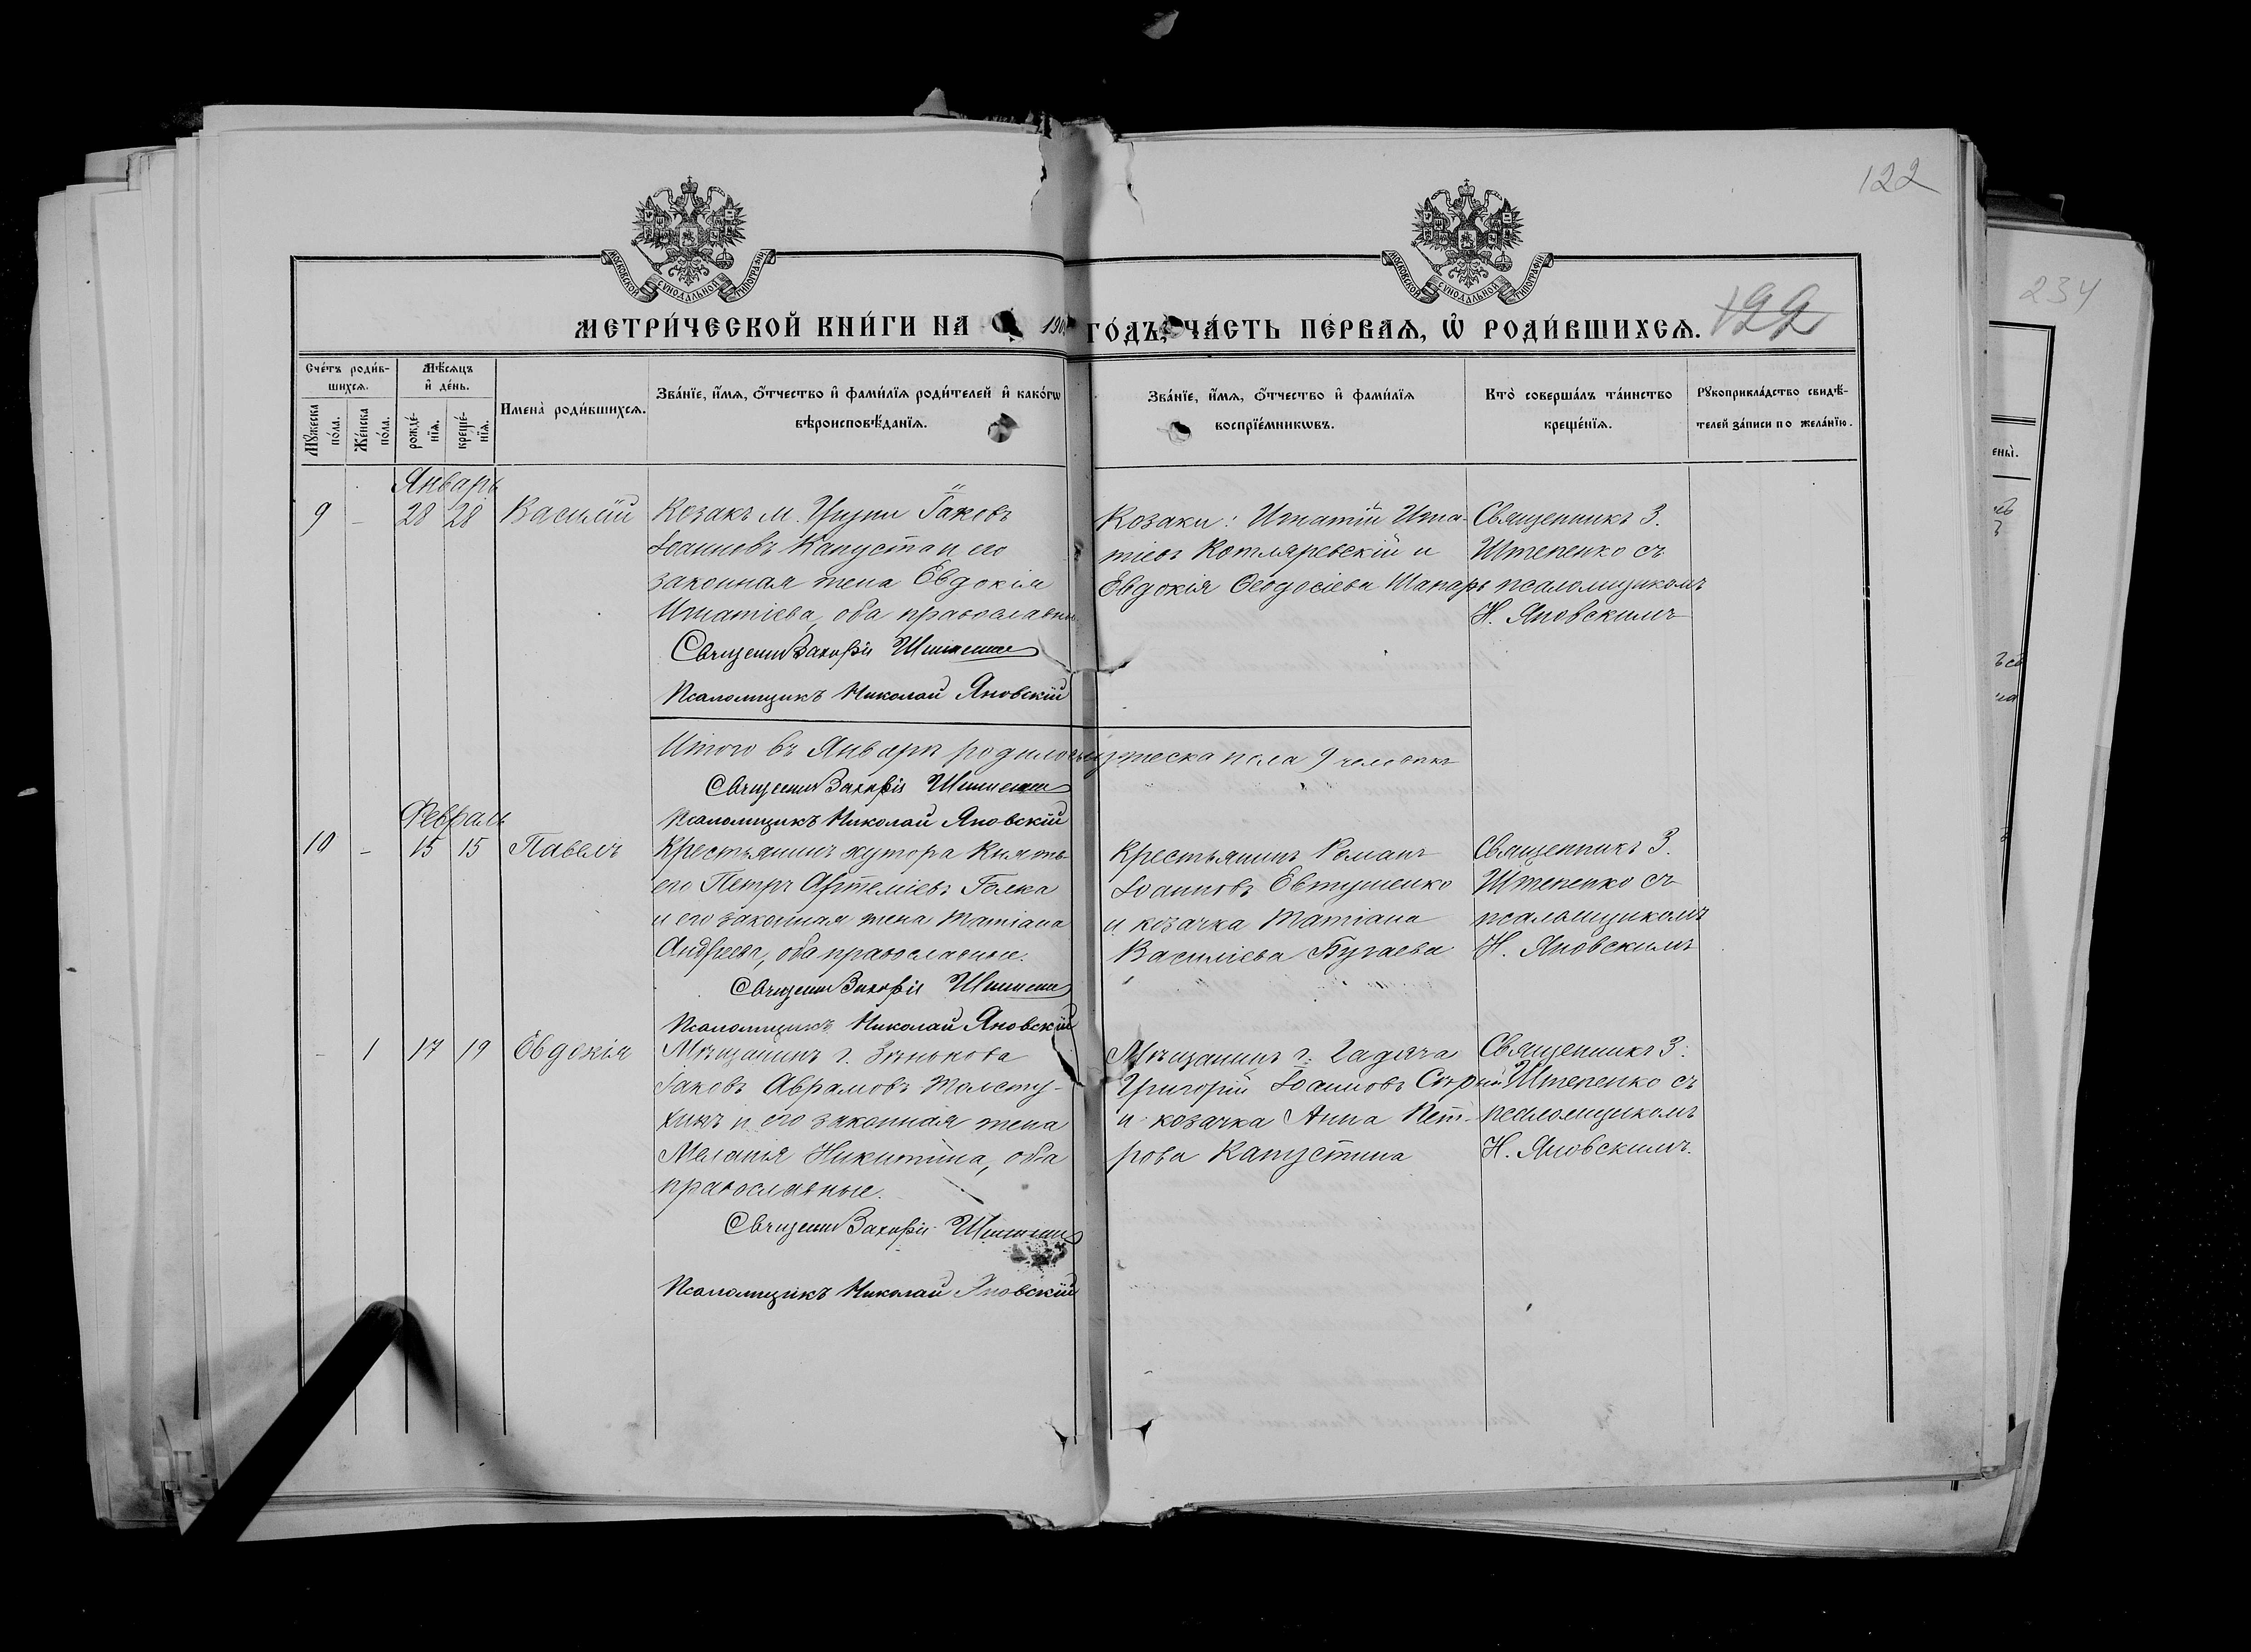 122
МОСКОВСКОЙ СѴНОДАЛЬНОЙ ТИПОГРАФІИ
МОСКОВСКОЙ СѴНОДАЛЬНОЙ ТИПОГРАФІИ
234
МЕТРИ́ЧЕСКОЙ КНИ́ГИ НА 190 ГО́ДЪ, ЧА́СТЬ ПЕ́РВАѦ, Ѡ҆ РОДИ́ВШИХСѦ. 122
Сче́тъ роди́в-
шихсѧ.
Мѣ́сѧцъ
и҆ де́нь.
Мꙋ́жеска по́ла.
Же́нска по́ла.
рожде́-
нїѧ.
креще́-
нїѧ.
Имена̀ роди́вшихсѧ.
Зва́нїе, и҆́мѧ, ѻ҆́тчество и҆ фами́лїѧ роди́телей и҆ како́гѡ
вѣроисповѣ́данїѧ.
Зва́нїе, и҆́мѧ, ѻ҆́тчество и҆ фами́лїѧ
воспрїе́мникѡвъ.
Кто̀ соверша́лъ та́инство
креще́нїѧ.
Рꙋкоприкла́дство свидѣ́-
телей за́писи по жела́нїю.
Январь
9 - 28 28 Василій
Козакъ м. Груни Іаковъ
Іоанновъ Капуста и его
законная жена Евдокія
Игнатіева, оба православны
Священн Захарія Штепенко
Псаломщикъ Николай Яновскій
Козаки: Игнатій Игна-
тіевъ Котляревскій и
Евдокія Ѳеодосіева Шапарь
Священникъ З.
Штепенко съ
псаломщикомъ
Н. Яновскимъ
Итого въ Январѣ родилось мужеска пола 9 человѣкъ
Священн Захарія Штепенко
Псаломщикъ Николай Яновскій
Февраль
10 - 15 15 Павелъ
Крестьянинъ хутора
его Петръ Артеміевъ Галка
и его законная жена Татіана
Андреева, оба православные.
Священн Захарія Штепенко
Псаломщикъ Николай Яновскій
Крестьянинъ Романъ
Іоанновъ Евтушенко
и козачка Татіана
Василіева Бугаева
Священникъ З.
Штепенко съ
псаломщикомъ
Н. Яновскимъ
- 1 17 19 Евдокія
Мѣщанинъ г. Зѣнькова
Іаковъ Аврамовъ Толсту-
хинъ и его законная жена
Меланія Никитина, оба
православные.
Священн Захарія Штепенко
Псаломщикъ Николай Яновскій
Мѣщанинъ г. Гадяча
Григорій Іоанновъ Сѣрый
и козачка Анна Пет-
рова Капустина
Священникъ З.
Штепенко съ
псаломщикомъ
Н. Яновскимъ.